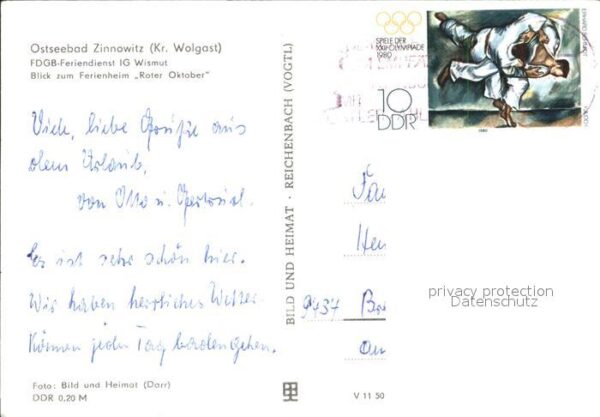 Ostseebad Zinnowitz (Kr. Wolgast)
FDGB-Feriendienst IG Wismut
Blick zum Ferienheim „Roter Oktober"
Viele, liebe Grüße aus
dem Urlaub,
von Otto u. Gertrud.
Es ist sehr schön hier.
Wir haben herrliches Wetter.
Können jeden Tag baden gehen.
Foto: Bild und Heimat (Darr)
DDR 0,20 M
BILD UND HEIMAT · REICHENBACH (VOGTL)
V 11 50
SPIELE DER
XXII.OLYMPIADE
1980
10
DDR
1980
Fam
Her
9437
privacy protection
Datenschutz